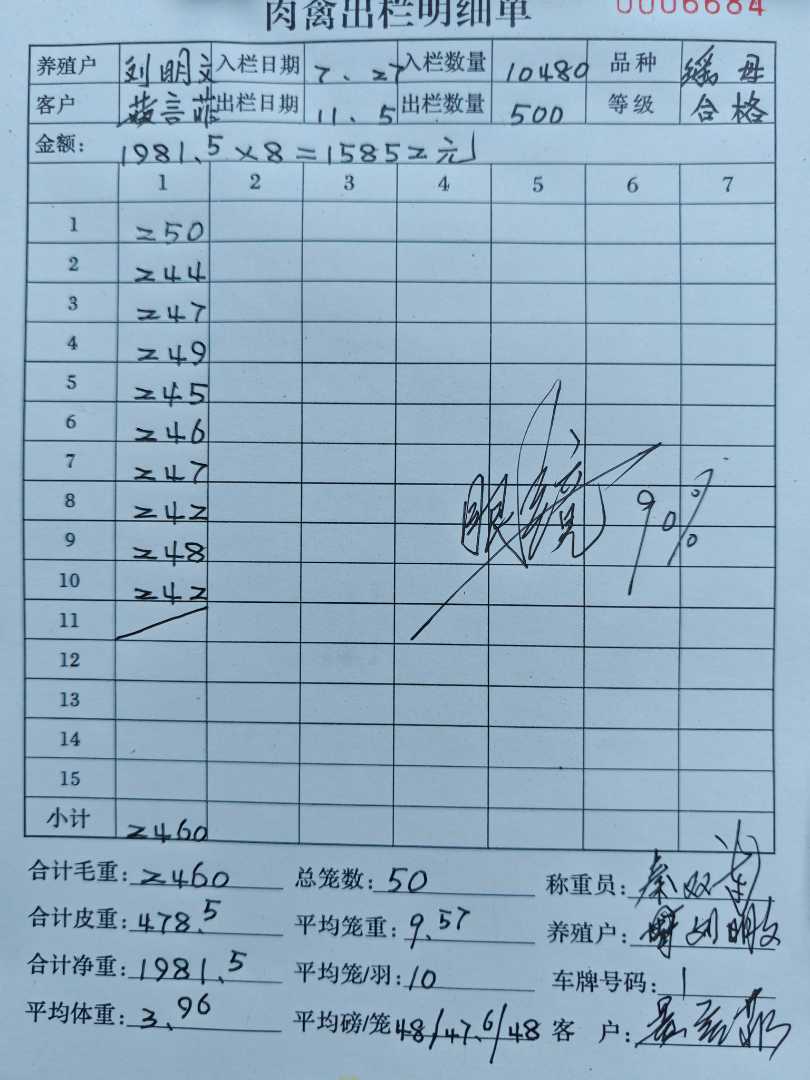 肉禽出栏明细单 0006684
养殖户 刘明文 入栏日期 7.27 入栏数量 10480 品种 瑶母
客户 出栏日期 11.5 出栏数量 500 等级 合格
金额: 1981.5×8=15852元
1 2 3 4 5 6 7
1 250
2 244
3 247
4 249
5 245
6 246
7 247
8 242
9 248
10 242
11
12
13
14
15
眼镜 90%
小计 2460
合计毛重: 2460 总笼数: 50 称重员: 秦双
合计皮重: 478.5 平均笼重: 9.57 养殖户: 刘明文
合计净重: 1981.5 平均笼/羽: 10 车牌号码: 1
平均体重: 3.96 平均磅/笼 48/47.6/48 客 户: